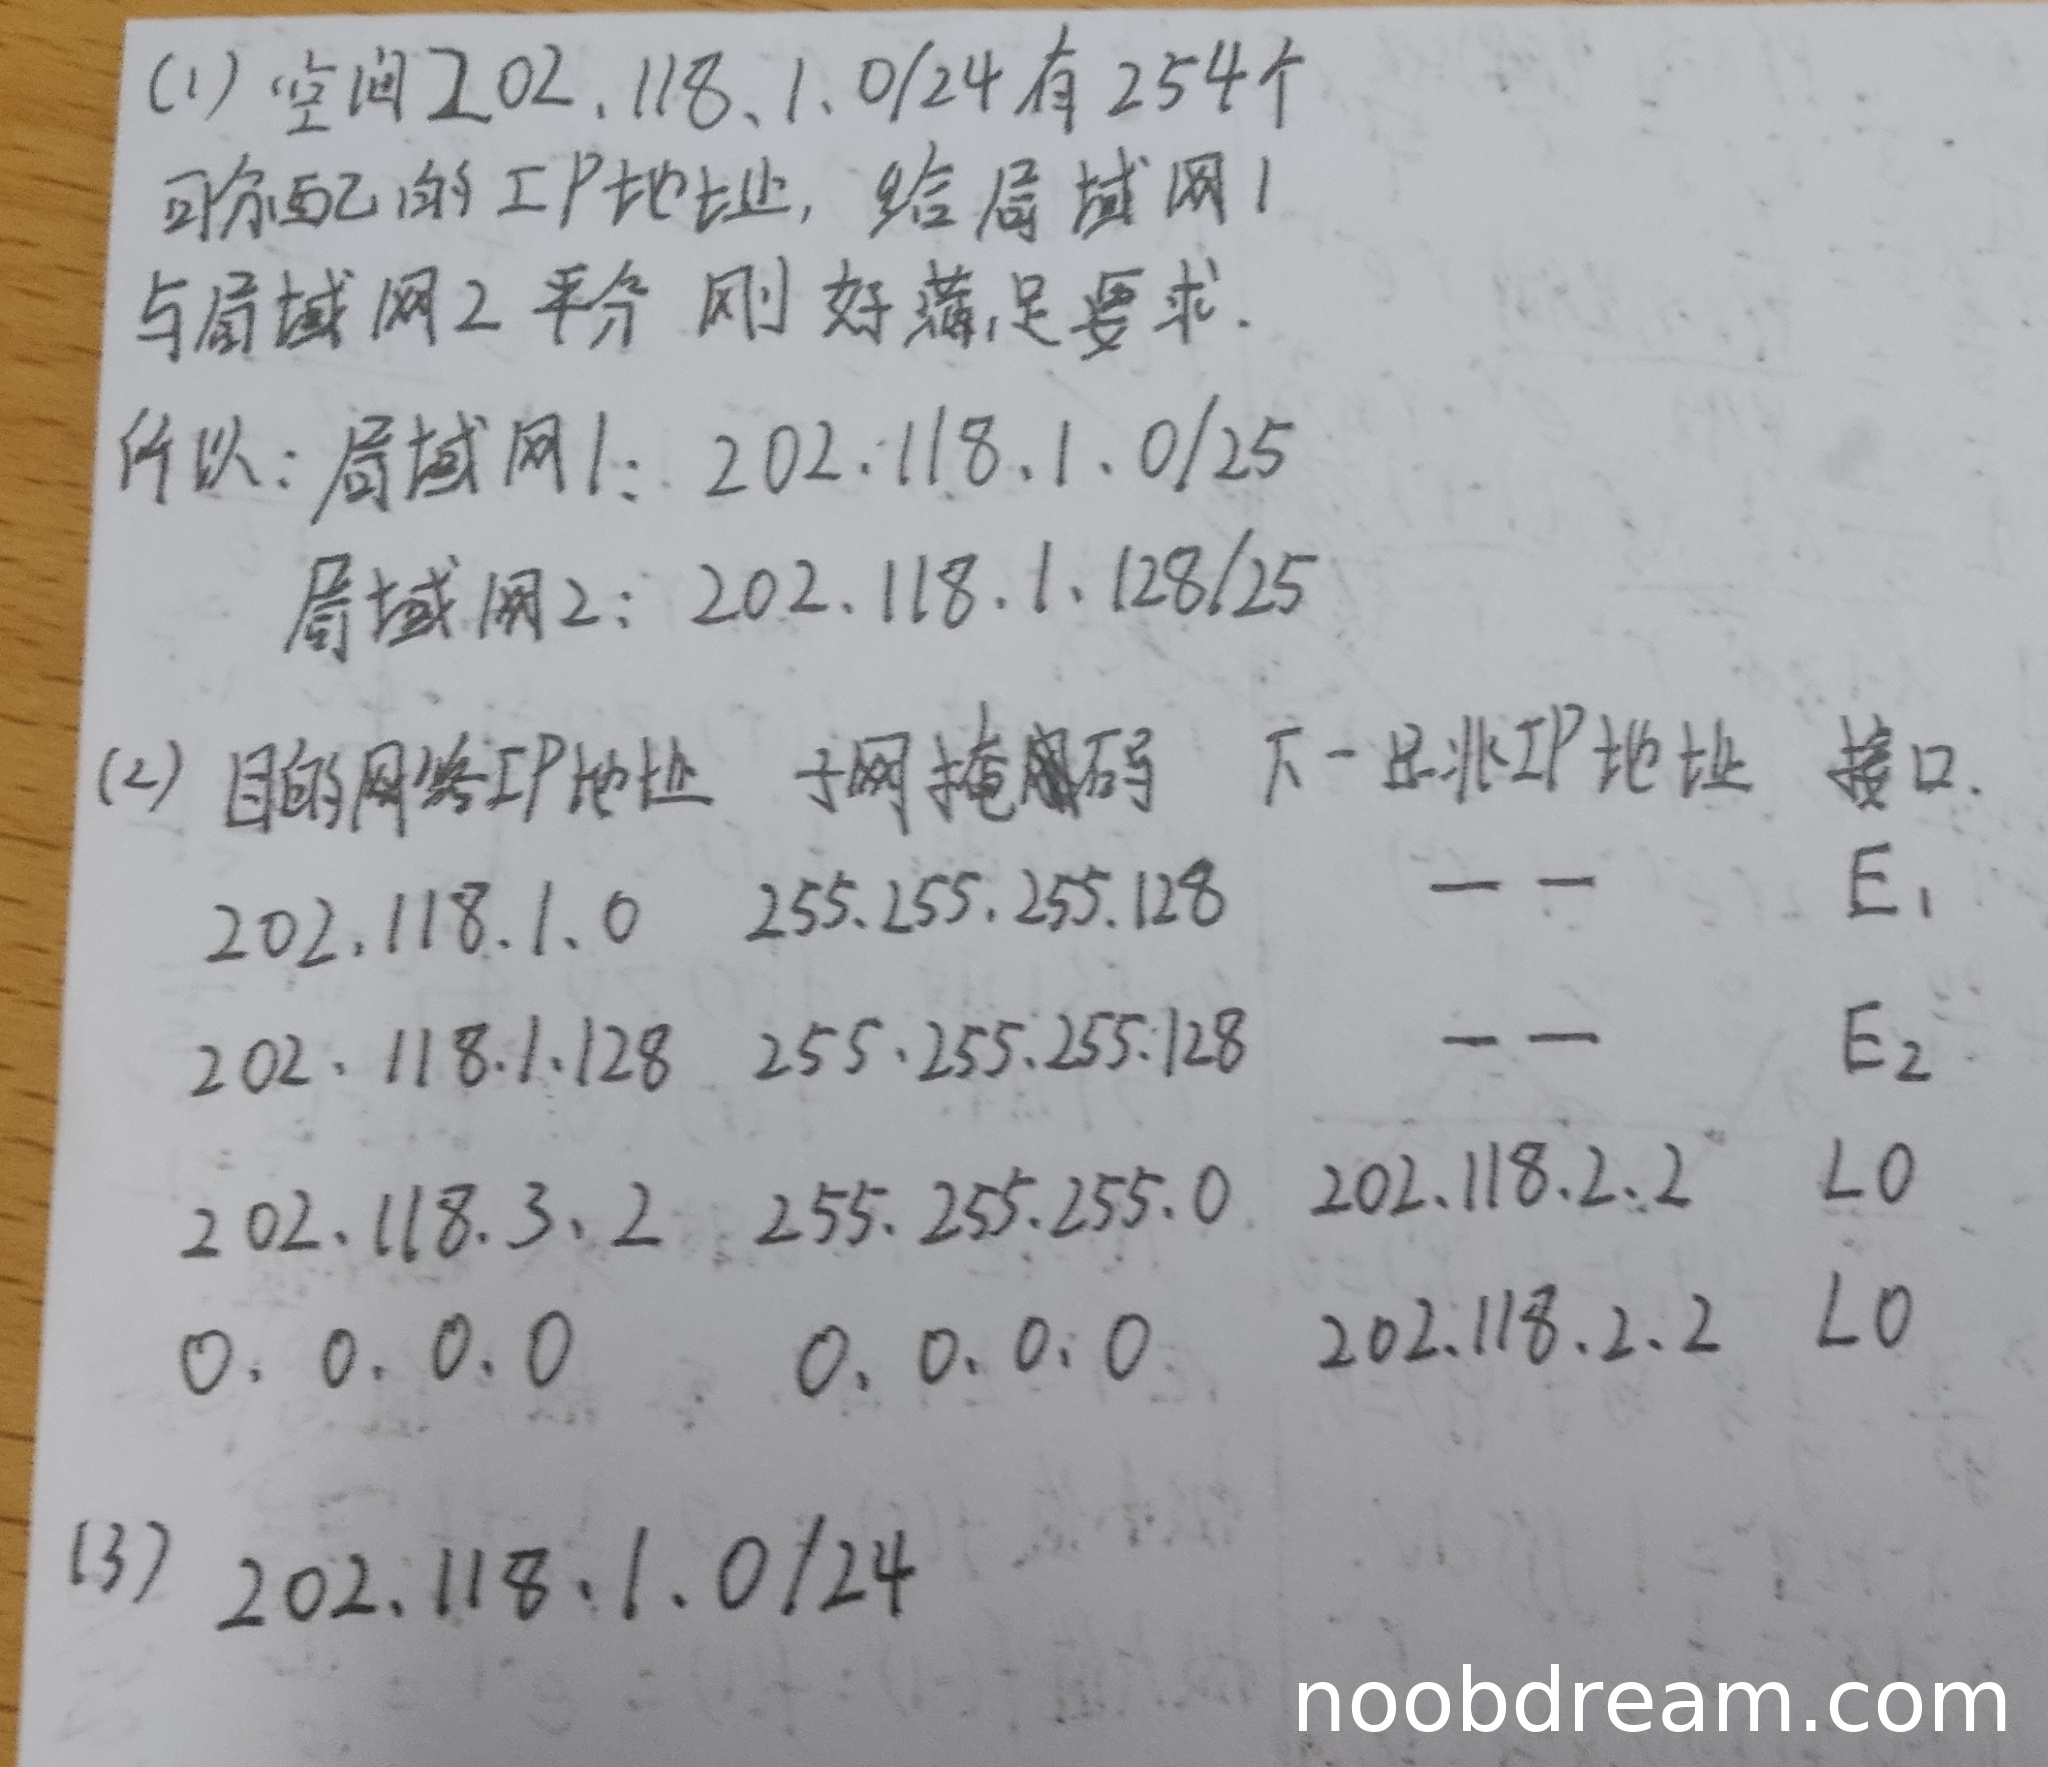 (1) 空间202.118.1.0/24有254个
可分配的IP地址, 给局域网1
与局域网2平分 刚好满足要求.
所以: 局域网1: 202.118.1.0/25
局域网2: 202.118.1.128/25
(2) 目的网络IP地址 子网掩码 下一跳IP地址 接口.
202.118.1.0 255.255.255.128 —— E1
202.118.1.128 255.255.255.128 —— E2
202.118.3.2 255.255.255.0 202.118.2.2 L0
0.0.0.0 0.0.0.0 202.118.2.2 L0
(3) 202.118.1.0/24
noobdream.com